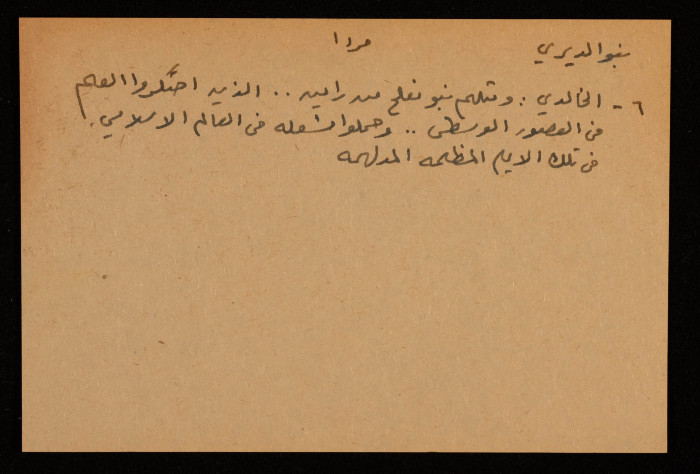 بنو الديري
مردا
٦ - الخالدي : ومثلهم بنو مفلح من رامين .. الذين احتكروا العلم
في العصور الوسطى .. وحملوا مشعله في العالم الاسلامي
في تلك الايام المظلمه المدلهمه